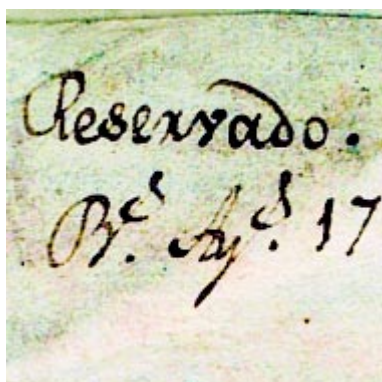 Reservado.
B.s Ay.s 17